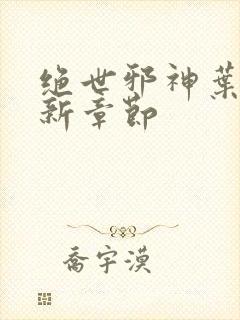 绝世邪神葉
新章節
喬宇漠